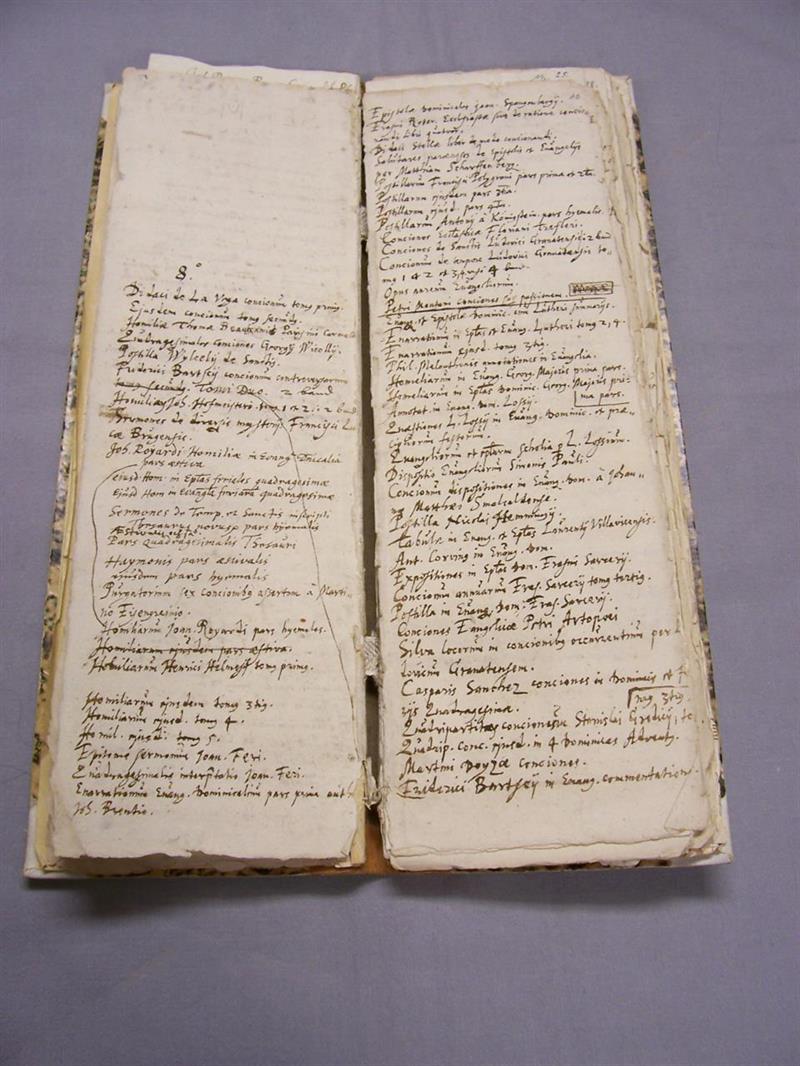 8.°
Didaci de La Vega concionum tomg primg.
Ejusdem concionum tomg secundg.
Homiliæ Thomæ Beauxamis Parisini
Quadragesimales Conciones Georgij Wicelij.
Postilla Wylcelij de Sanctis.
Friderici Bartscij concionum controversarum
Tomi Duo. 2 band
Homiliæ Joh. Hofmeisteri tom 1 et 2. 2 band
Sermones de diversis mysterijs Francisci Lu
cæ Brugensis.
Joh. Royardi Homiliæ in Evang. Dnicalia
pars æstiva
ejusd Hom. in Eptas feriales quadragesimæ
Ejusd Hom in Evangelia feriarū quadragesimæ
Sermones de Temp. et Sanctis inscripti
Thesaurus novus pars hyemalis
Pars Quadragesimalis Thesauri
Haymonis pars æstivalis
ejusdem pars hyemalis
sex concionibus à Marti
no Eisengreinio.
Homiliarum Joan. Royardi pars hyemales.
Homiliarum ejusdem pars æstiva.
Homiliarum Henrici Helmesij tomg primg.
Homiliarum ejusdem tomg 3tig.
Homiliarum ejusd. tomg 4.
Homil. ejusdē tomg 5.
Epitome sermonum Joan. Feri.
Quadragesimalis interpretatio Joan. Feri.
Enarrationum Evang. Dominicalium pars prima auth.
Joh. Brentio.
25.
Epistolæ Dominicales Joan. Spangenbergij.
Erasmi Roter. Ecclesiastæ sive de ratione concio
nandi libri quatuor.
Didaci Stellæ liber de modo concionandi.
Salutares de Epistolis et Evangelijs
per Matthiam Scharffenberg.
Postillarum Francisci Polygrani pars prima et 2da.
Postillarum ejusdem pars 3tia.
Postillarum ejusd. pars 4ta.
Postillarum Antonij à Königstein pars hyemalis.
Conciones Ecclesiasticæ Floriani Trefleri.
Conciones de Sanctis Ludovici Granatensis 2 band
Concionum de tempore Ludovici Granatensis to=
mg 1 4 2 et 3
Opus aureum Evangeliorum.
Petri Mentani conciones
Evang. et Epistolæ Dominic. cum Lutheri summarijs.
Enarrationum in Eptas et Evang. Lutheri tomg 2, 4.
Enarrationum ejusd. tomg 3tig.
Phil. Melanthonis annotationes in Evangelia.
Homeliarum in Evang. Georg. Majoris prima pars.
Homeliarum in Eptas Dominic. Georg. Majoris pri=
ma pars.
Annotat. in Evang. Dom. Lossij.
Quæstiones L. Lossij in Evang. Dominic. et præ=
cipuorum festorum.
Evangeliorum et eptarum scholia p L. Lossium.
Dispositio Evangeliorum Simonis Pauli.
Concionum dispositiones in Evang. Dom. à Johan=
ne Matthæo Smalcaldense.
Postilla Nicolai Hemmingij.
Tabulæ in Evang. et Eptas Laurentij Villavicensis.
Ant. Corving in Evang. Dom.
Expositiones in Eptas Dom. Erasmi Sarcerij.
Concionum annuarum Eras. Sarcerij tomg tertig.
Postilla in Evang. Dom. Eras. Sarcerij.
Conciones Evangelicæ Petri Artopoei
Silva locorum in concionibg occurrentium per L
dovicum Granatensem.
Casparis Sanchez conciones in Dominicis et f
rijs Quadragesimæ.
mg 3tig.
Quadripartitæ concionesque Stanislai Grodicij, to
Quadrip. conc. ejusd. in 4 Dominicas Adventg.
Martini Doyzæ conciones.
Friderici Bartscij in Evang. commentation